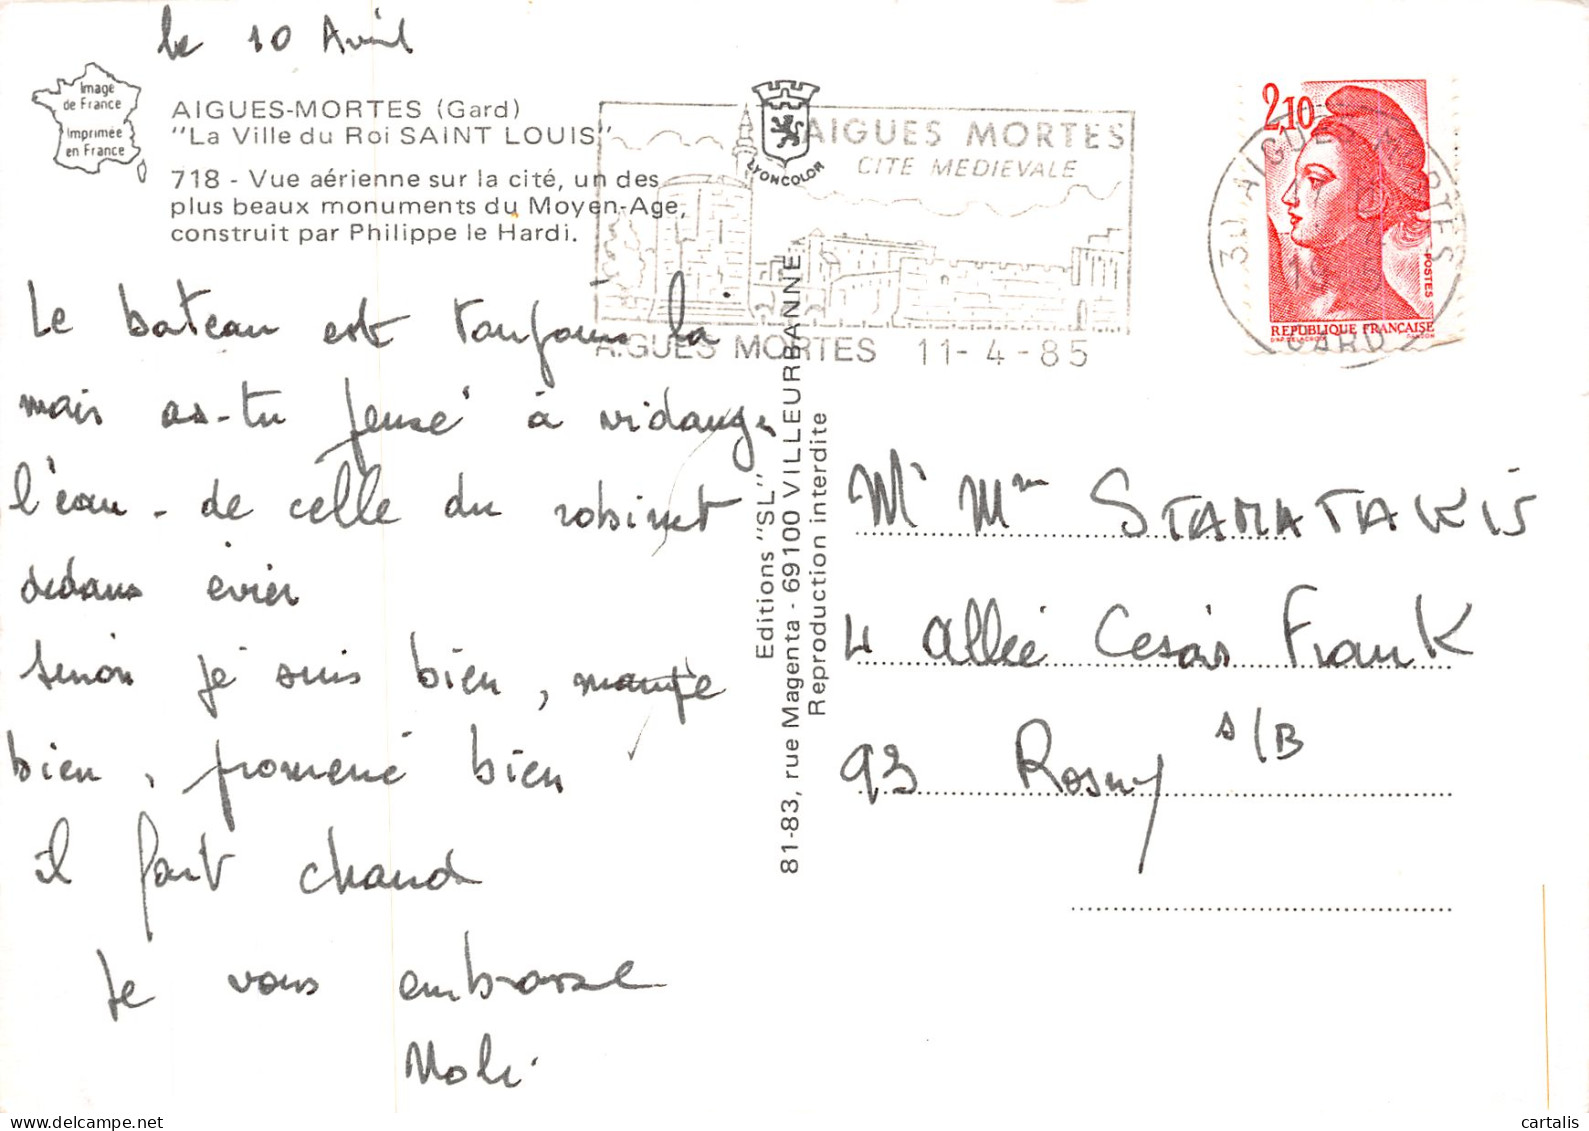 le 10 Avril
Image
de France
Imprimée
en France
AIGUES-MORTES (Gard)
"La Ville du Roi SAINT LOUIS"
718 - Vue aérienne sur la cité, un des
plus beaux monuments du Moyen-Age,
construit par Philippe le Hardi.
LYONCOLOR
AIGUES MORTES
CITE MEDIEVALE
AIGUES MORTES 11-4-85
2,10
POSTES
REPUBLIQUE FRANÇAISE
D'AP. DELACROIX GANDON
30 AIGUES MORTES
GARD
Le bateau est toujours là
mais as-tu pensé à vidanger
l'eau - de celle du robinet
dedans évier
sinon je suis bien, mange
bien, promené bien
il fait chaud
Je vous embrasse
Editions "SL"
81-83, rue Magenta - 69100 VILLEURBANNE
Reproduction interdite
Mr Mme STAMATAKIS
4 allée Cesar Frank
93 Rosny s/B
delcampe.net
cartalis